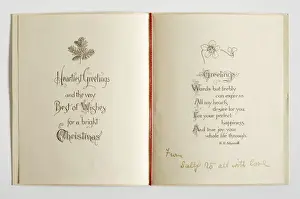 Heartiest Greetings
and the very
Best of Wishes
for a bright
Christmas!
Greeting
Words but feebly
can express
All my heart's
desire for you
For your perfect
happiness
And true joy your
whole life through.
From
Sally to all with love